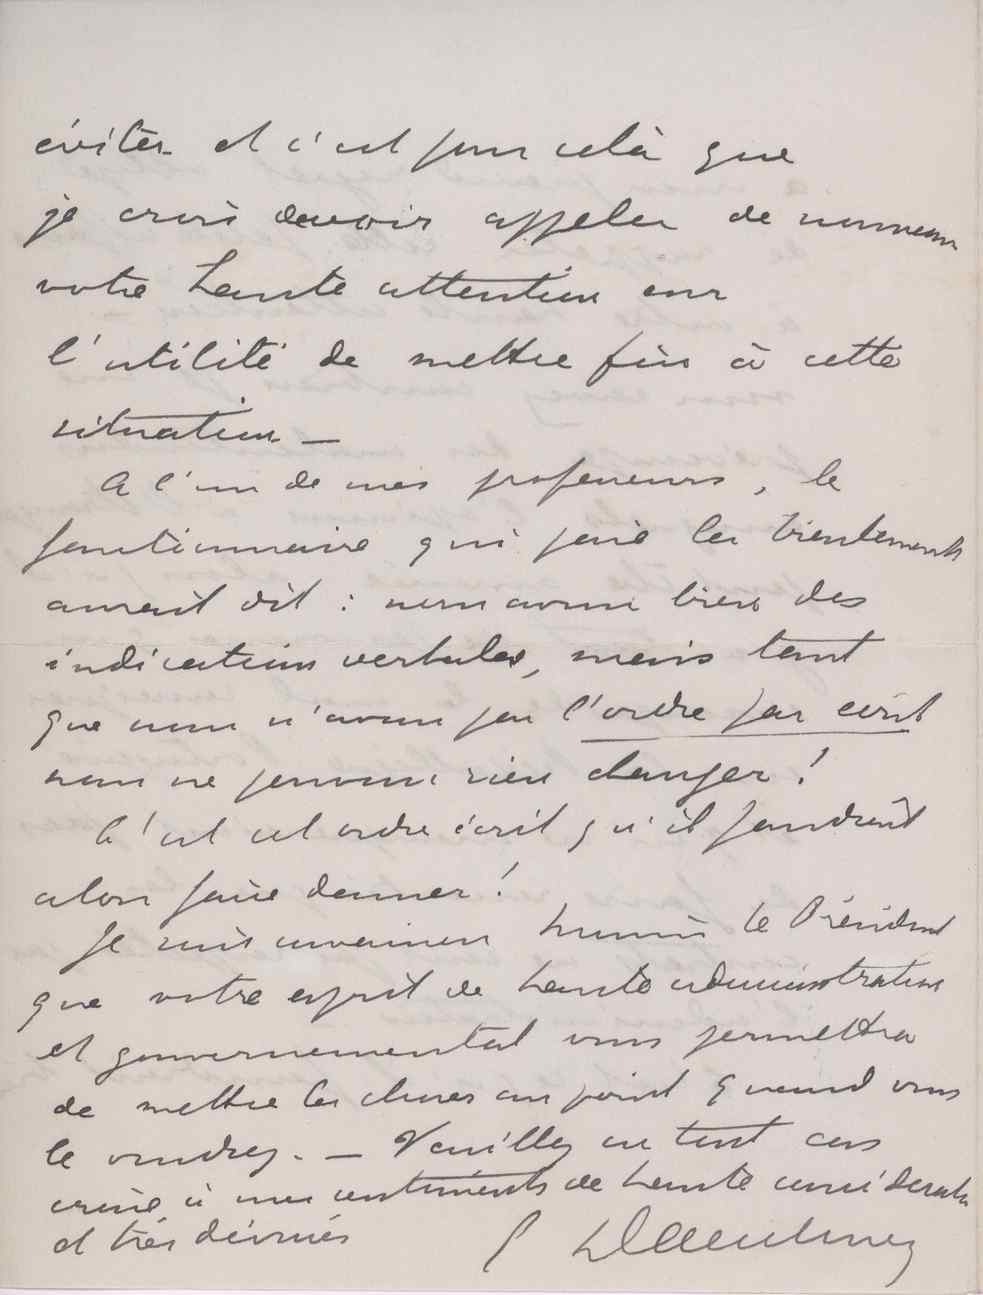 éviter et c'est pour celà que
je crois devoir appeler de nouveau
votre haute attention sur
l'utilité de mettre fin à cette
situation —
A l'un de mes professeurs, le
fonctionnaire qui paie les traitements
aurait dit : nous avons bien des
indications verbales, mais tant
que nous n'avons pas l'ordre par écrit
nous ne pouvons rien changer !
C'est cet ordre écrit qu'il faudrait
alors faire donner !
Je suis convaincu Monsieur le Président
que votre esprit de haute administration
et gouvernemental vous permettra
de mettre les choses au point quand vous
le voudrez. — Veuillez en tout cas
croire à mes sentiments de haute considération
et très dévoués